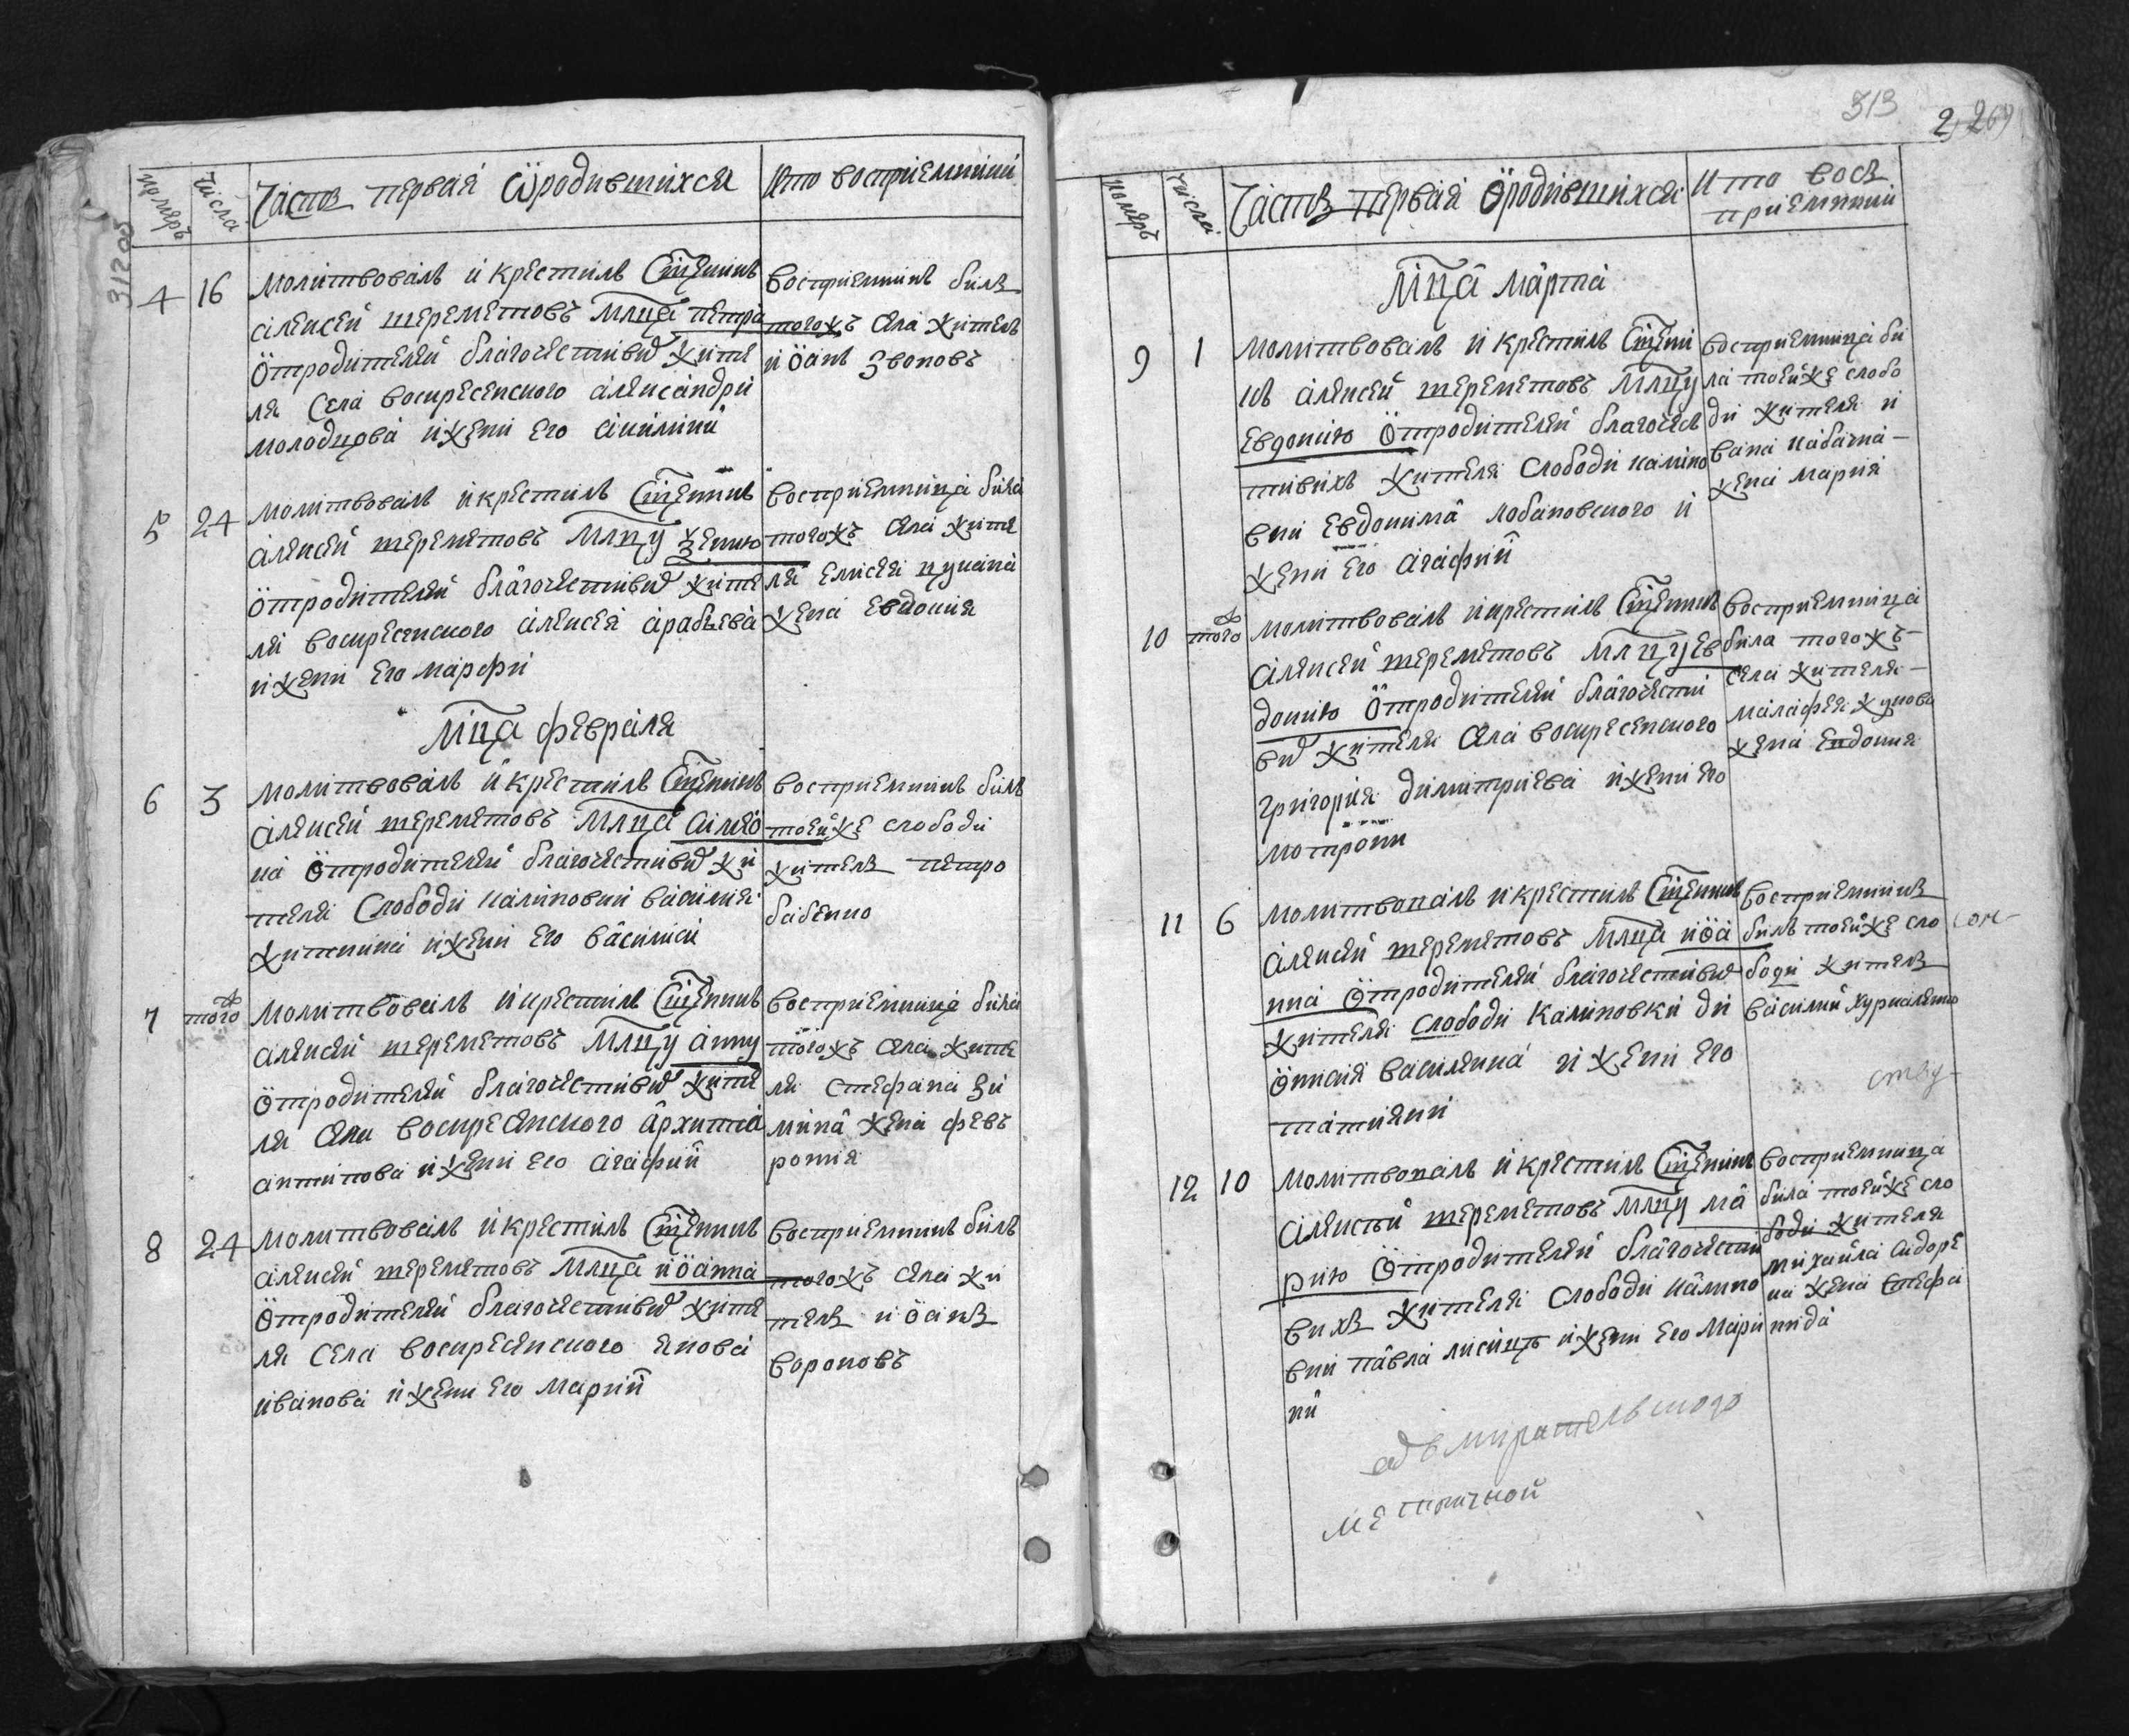 номеръ
числа
Часть первая ѡродившихся
кто восприемники
4
16
молитвовалъ и крестилъ Сщенникъ
алексей шереметовъ млнца петра
ѿродителей благочестивых жите
ля Села воскресенского александра
молодцова и жени его акилини
восприемникъ билъ
тогожъ села житель
иоанъ звоновъ
5
24
молитвовалъ и крестилъ Сщенникъ
алексей шереметовъ млнцу ѯению
ѿродителей благочестивых жите
ля воскресенского алексея арабьева
и жени его марфи
восприемница била
тогожъ села жите
ля елисея
жена евдокия
мца февраля
6
3
молитвовалъ и крестилъ Сщенникъ
алексей шереметовъ млнца симео
на ѿродителей благочестивых жи
теля Слободи калиновки василия
житника и жени его василиси
восприемникъ билъ
тойже слободи
житель петро
бабенко
7
того
молитвовалъ и крестилъ Сщенникъ
алексей шереметовъ млнцу анну
ѿродителей благочестивых жите
ля села воскресенского архипа
антипова и жени его агафии
восприемница била
тогожъ села жите
ля стефана зи
мина жена февъ
рония
8
24
молитвовалъ и крестилъ Сщенникъ
алексей шереметовъ млнца иоанна
ѿродителей благочестивых жите
ля села воскресенского якова
иванова и жени его марии
восприемникъ билъ
тогожъ села жи
тель иоанъ
вороновъ
313
2, 269
номеръ
числа
Часть первая ѡродившихся
кто вос
приемники
мца марта
9
1
молитвовалъ и крестилъ Сщенни
къ алексей шереметовъ млнцу
евдокию ѿродителей благочес
тивихъ жителя слободи калино
вки евдокима лобановского и
жени его агафии
восприемница би
ла тойже слобо
ди жителя и
вана кабачка
жена мария
10
того
молитвовалъ и крестилъ Сщенникъ
алексей шереметовъ млнцу ев
докию ѿродителей благочести
вых жителя села воскресенского
григория димитриева и жени его
мотрони
восприемница
била тогожъ
села жителя
малафея жукова
жена евдокия
11
6
молитвовалъ и крестилъ Сщенникъ
алексей шереметовъ млнца иоа
нна ѿродителей благочестивых
жителя слободи Калиновки ди
онисия василенка и жени его
татияни
восприемникъ
билъ тойже сло
боди житель
василий журавленко
12
10
молитвовалъ и крестилъ Сщенникъ
алексий шереметовъ млнцу ма
рию ѿродителей благочести
вихъ жителя слободи калино
вки павла лисицъ и жени его мари
ни
восприемница
била тойже сло
боди жителя
михайла сидоре
на жена стефа
нида